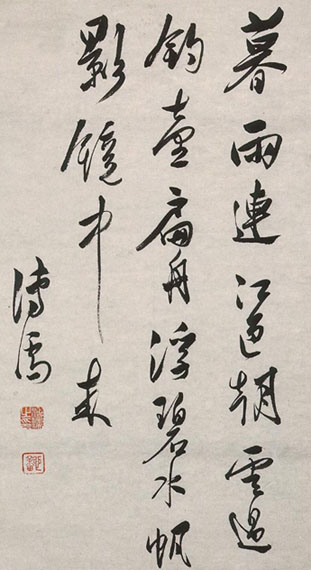 暮雨連江色朝雲過
釣臺扁舟浮碧水帆
影鏡中來
溥儒